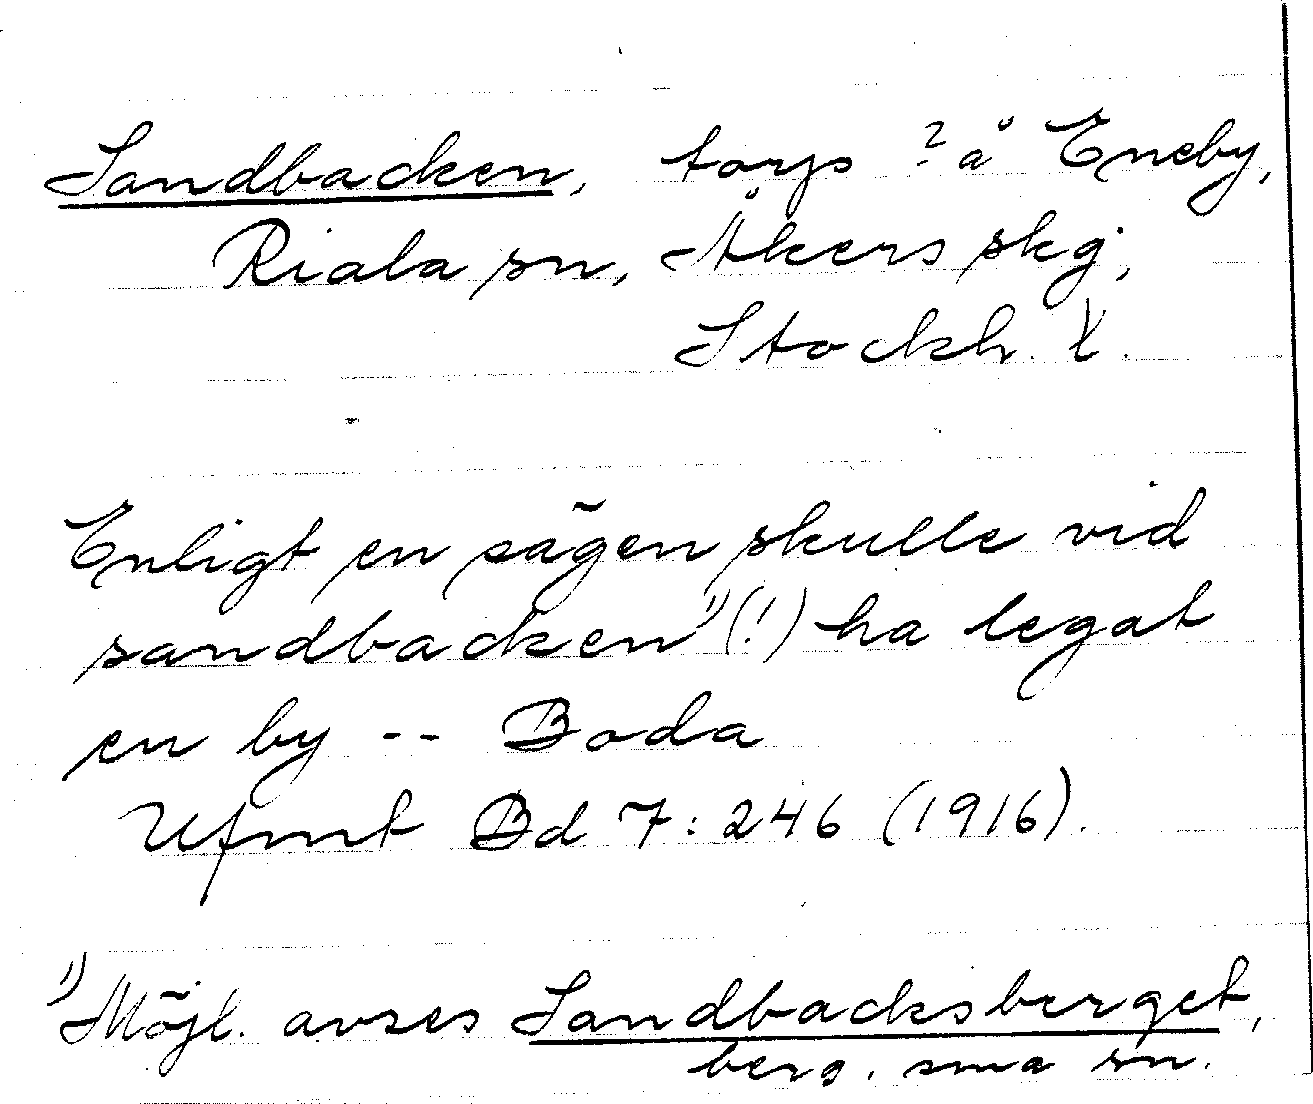 Sandbacken, torps ? å Eneby,
Riala sn, Åkers skg,
Stockh. l.
Enligt en sägen skulle vid
sandbacken¹⁾ (!) ha legat
en by -- Boda
Ufmt Bd 7:246 (1916).
¹⁾ Möjl. avses Sandbacksberget,
berg, sma sn.